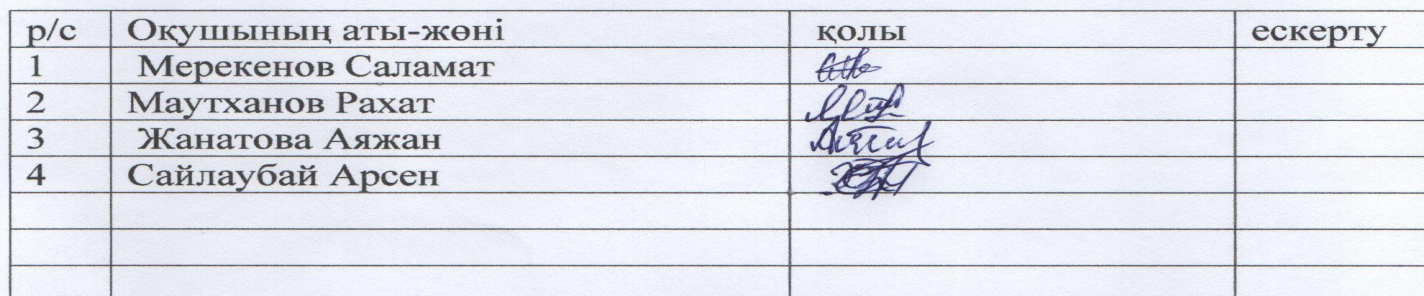 р/с Оқушының аты-жөні қолы ескерту
1 Мерекенов Саламат
2 Маутханов Рахат
3 Жанатова Аяжан
4 Сайлаубай Арсен